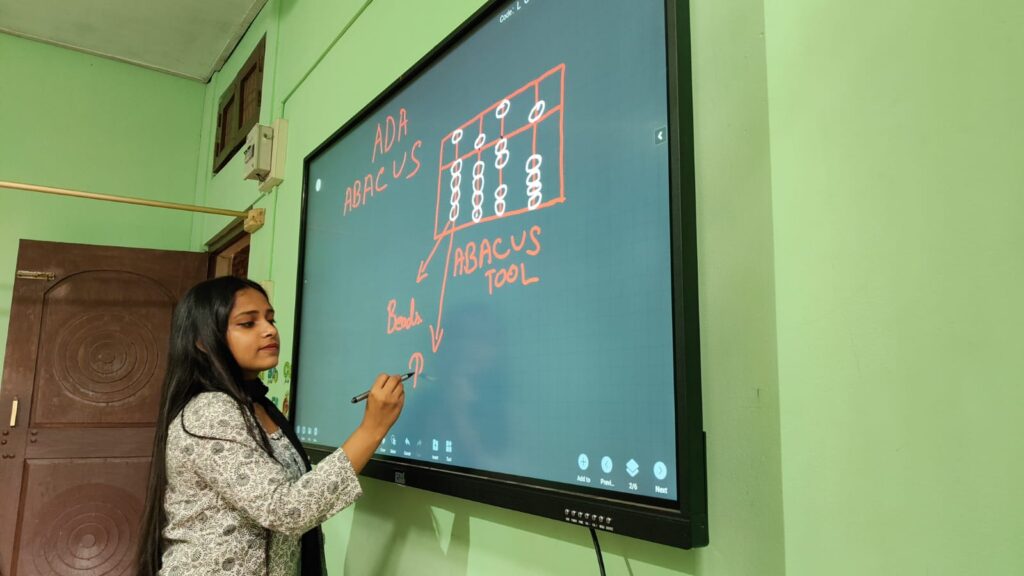 Code:
ADA
ABACUS
ABACUS
TOOL
Beads
Add to
Previ..
2/6
Next